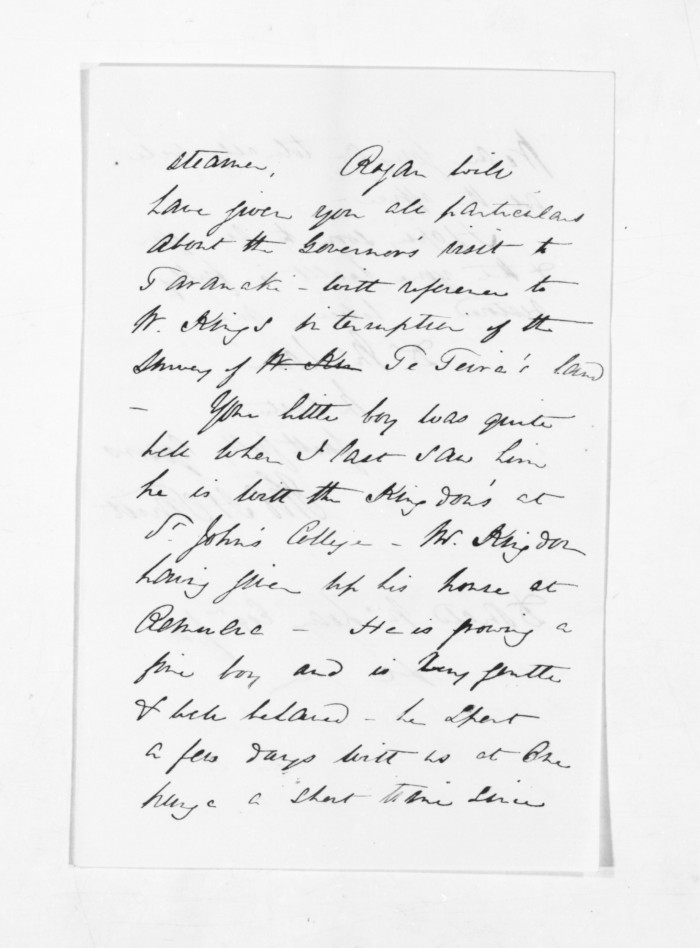 steamer, Rogan will
have given you all particulars
about the Governor's visit to
Taranaki - with reference to
W. King's interruption of the
survey of W. Kin Te Teira's land
- Your little boy was quite
well when I last saw him
he is with the Kingdon's at
St. John's College - Mr. Kingdon
having given up his house at
Remuera - He is growing a
fine boy and is very gentle
& well behaved - he spent
a few days with us at One
hunga a short time since